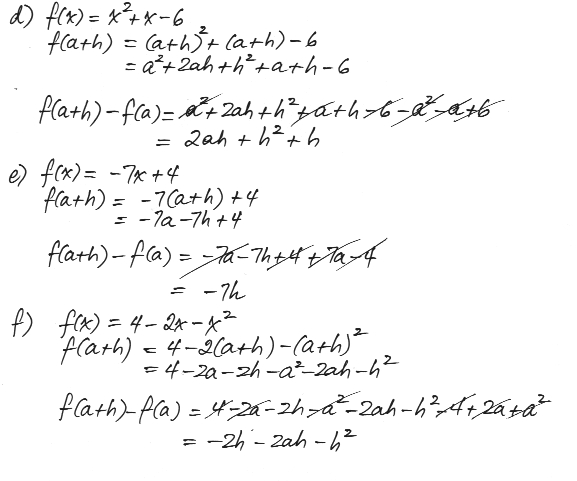 d) f(x) = x²+x-6
f(a+h) = (a+h)²+(a+h)-6
= a²+2ah+h²+a+h-6
f(a+h)-f(a) = a²+2ah+h²+a+h-6-a²-a+6
= 2ah+h²+h
e) f(x) = -7x+4
f(a+h) = -7(a+h)+4
= -7a-7h+4
f(a+h)-f(a) = -7a-7h+4+7a-4
= -7h
f) f(x) = 4-2x-x²
f(a+h) = 4-2(a+h)-(a+h)²
= 4-2a-2h-a²-2ah-h²
f(a+h)-f(a) = 4-2a-2h-a²-2ah-h²-4+2a+a²
= -2h-2ah-h²